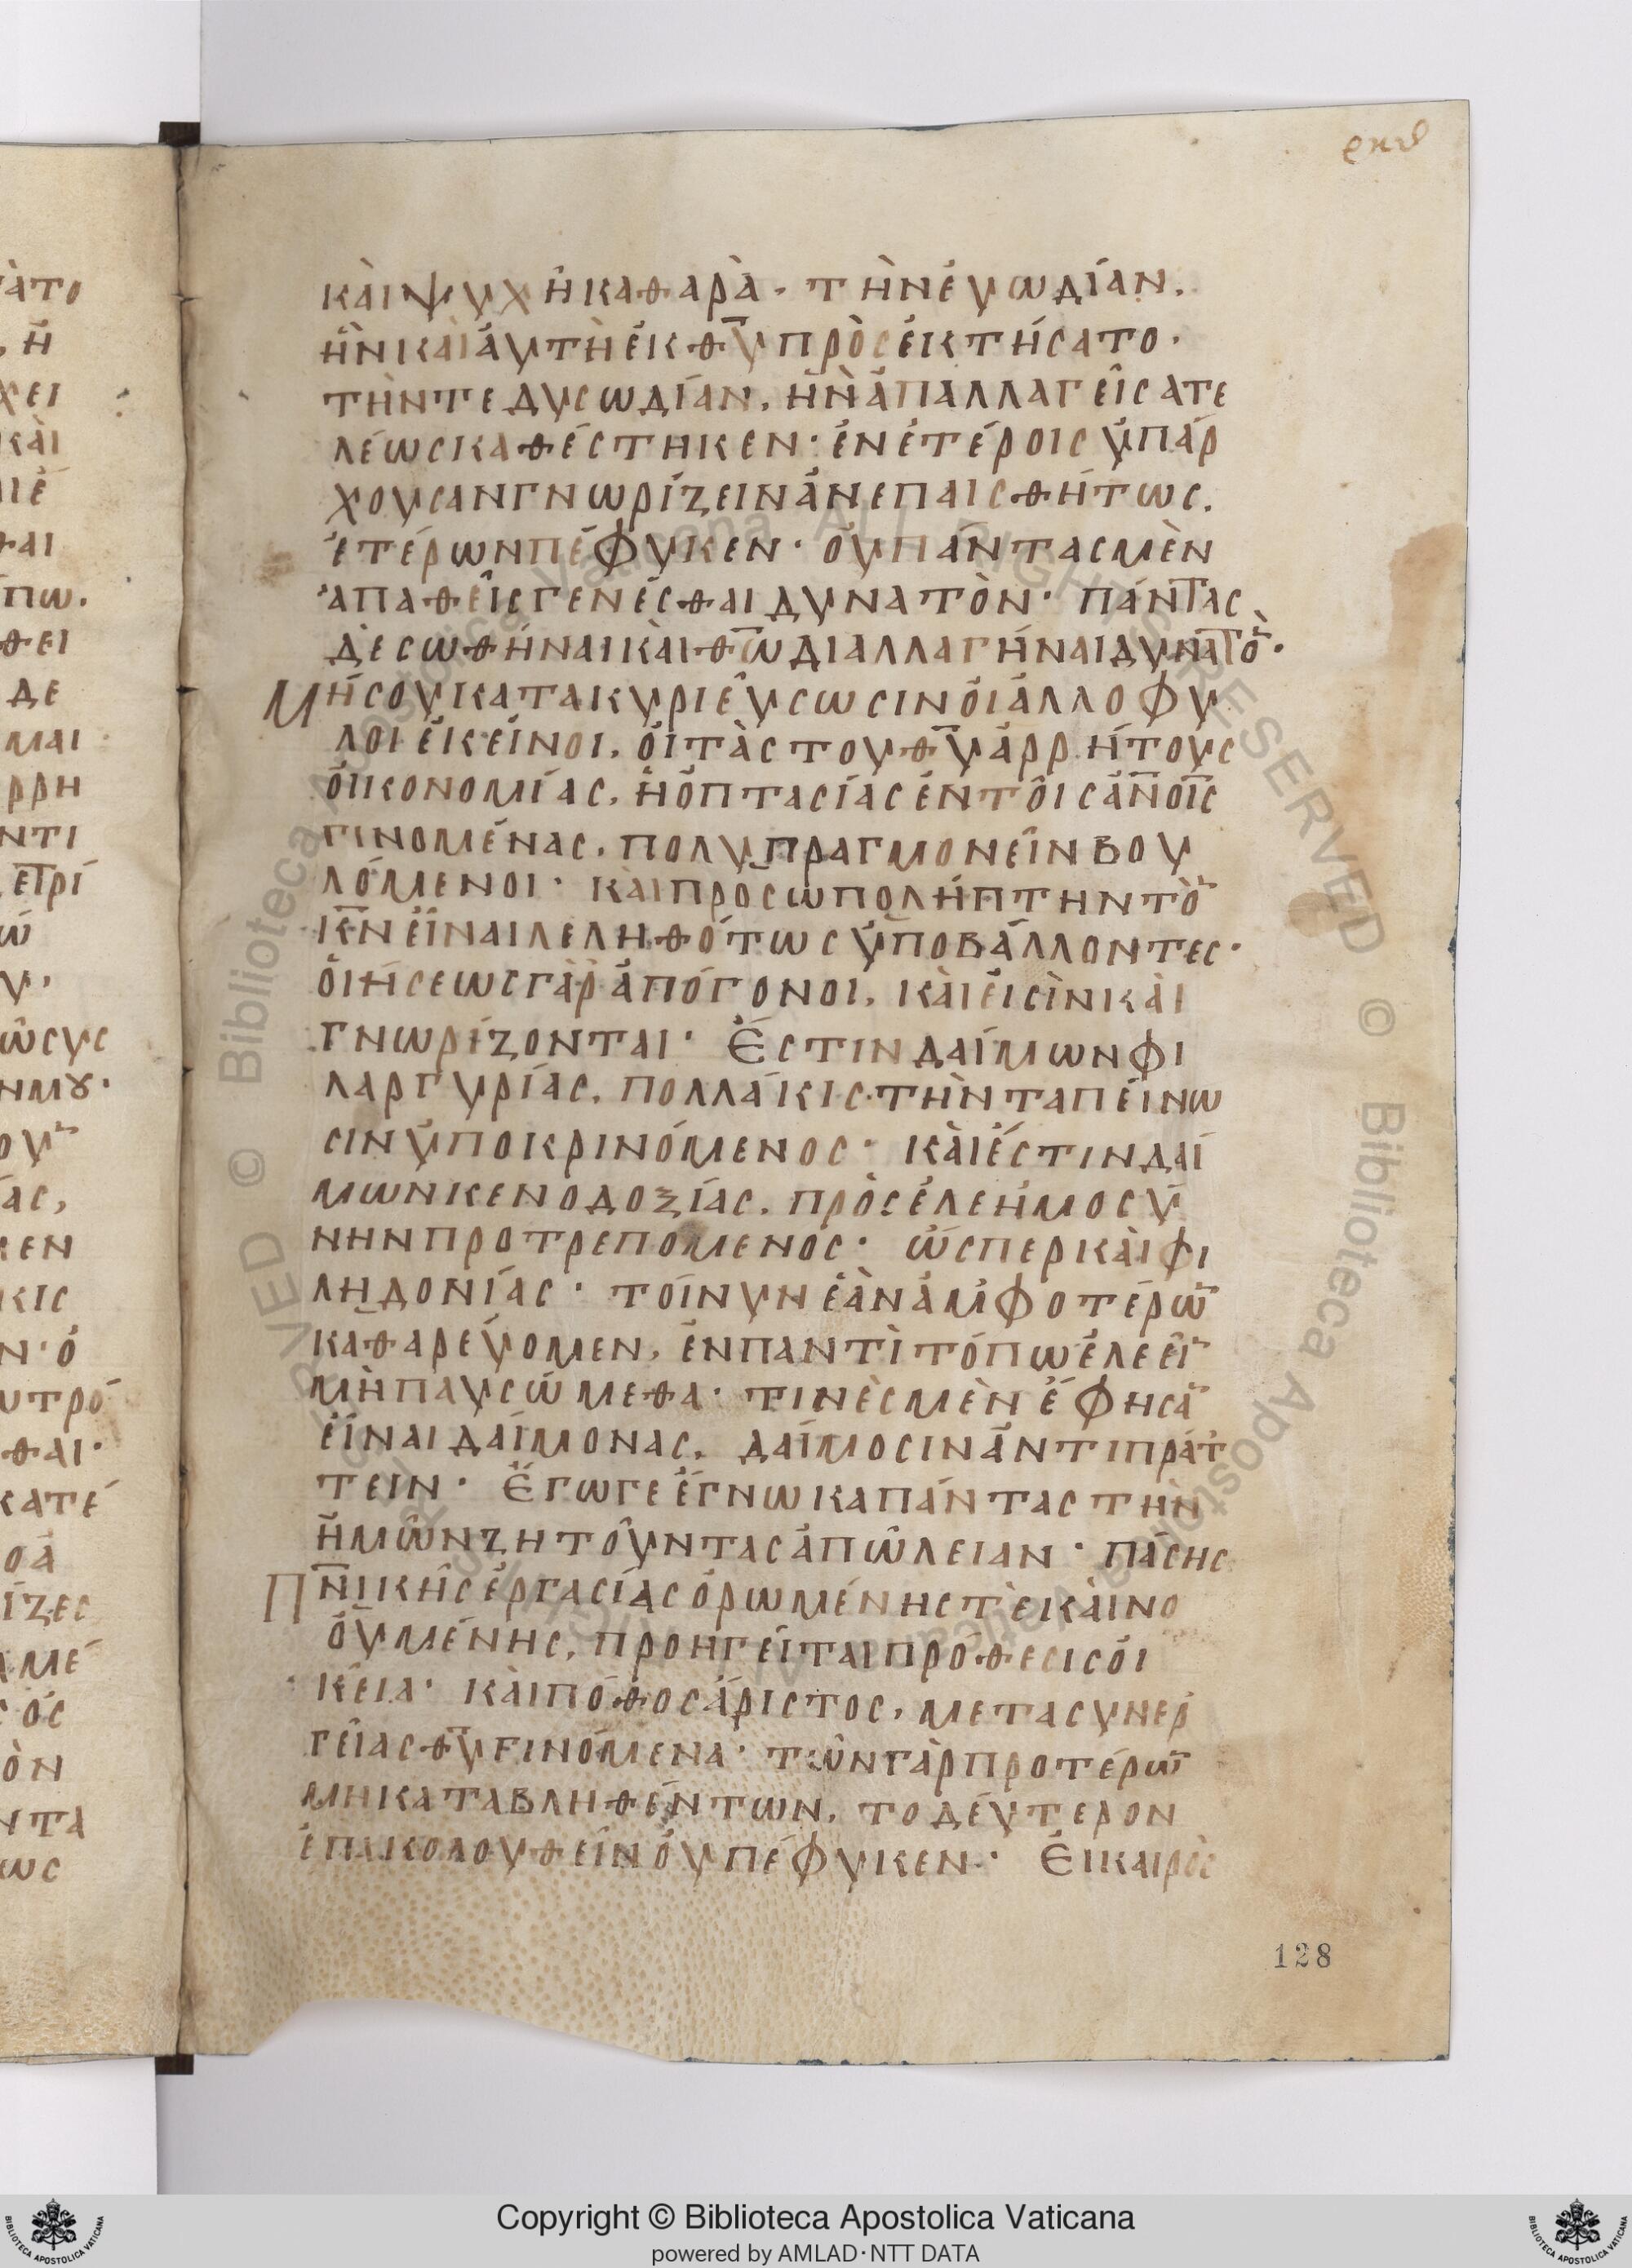 ρκδ
κὰι ψυχὴ καθαρὰ· τὴν ἐυωδίαν,
ἣν κὰι ἀυτὴ ἐκ θ̅υ̅ προσεκτήσατο·
τήν τε δυσωδίαν, ἣν ἀπαλλαγεῖσα τε
λέως καθέστηκεν· ἐν ἑτέροις ὑπάρ
χουσαν γνωρίζειν ἀνεπαισθήτως,
ἑτέρων πέφυκεν· ὀυ πάντας μὲν
ἀπαθεῖς γενέσθαι δυνατὸν· πάντας
δὲ σωθῆναι κὰι θ̅ω̅ διαλλαγῆναι δυνατὸ̅·
Μή σου κατακυριεύσωσιν ὁι ἀλλόφυ
λοι ἐκεῖνοι, ὁι τὰς του θ̅υ̅ ἀρρήτους
ὀικονομίας, ἢ ὀπτασίας ἐν τοῖς α̅ν̅ο̅ι̅ς̅
γινομένας, πολυπραγμονεῖν βου
λόμενοι· κὰι προσωπολήπτην τὸ̅
κ̅ν̅ εἶναι λεληθότως ὑποβάλλοντες·
ὀιήσεως γὰρ ἀπόγονοι, κὰι εἰσὶν κὰι
γνωρίζονται· Ἔστιν δαίμων φι
λαργυρίας, πολλάκις τὴν ταπείνω
σιν ὑποκρινόμενος· κὰι ἔστιν δαί
μων κενοδοξίας, πρὸς ἐλεημοσύ
νην προτρεπόμενος· ὥσπερ κὰι φι
ληδονίας· τοίνυν ἐὰν ἀμφοτέρω̅
καθαρεύομεν, ἐν παντὶ τόπω ἐλεεῖ̅
μὴ παυσώμεθα· τινὲς μὲν ἔφησα̅
εἶναι δαίμονας, δαίμοσιν ἀντιπράτ
τειν· Ἔγωγε ἔγνωκα πάντας τὴν
ἡμῶν ζητοῦντας ἀπώλειαν· πάσης
Π̅ν̅ικῆς ἐργασίας ὁρωμένης τὲ κὰι νο
ουμένης, προηγεῖται πρόθεσις ὀι
κεία· κὰι πόθος ἄριστος, μετα συνερ
γείας θ̅υ̅ γινόμενα· τῶν γὰρ προτέρω̅
μη καταβληθέντων, το δεύτερον
ἐπακολουθεῖν ὀυ πέφυκεν· Ἐι καιρὸς
128
Copyright © Biblioteca Apostolica Vaticana
powered by AMLAD·NTT DATA